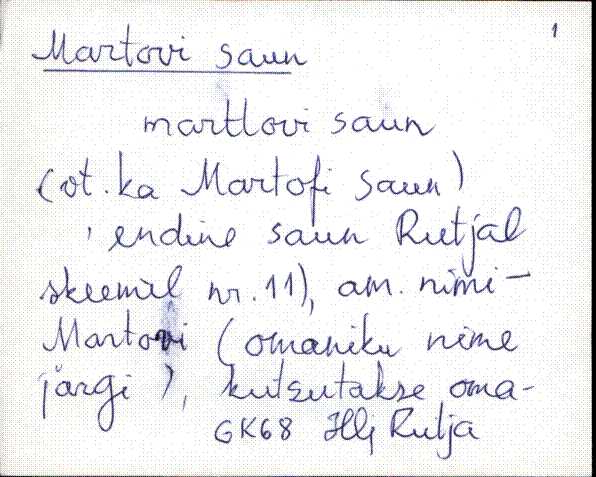 1
Martovi saun
martlovi saun
(vt. ka Martofi saun)
, endine saun Rutjal
skeemil nr. 11), am. nimi -
Martovi (omaniku nime
järgi), kutsutakse oma-
GK68 Hlj Rutja